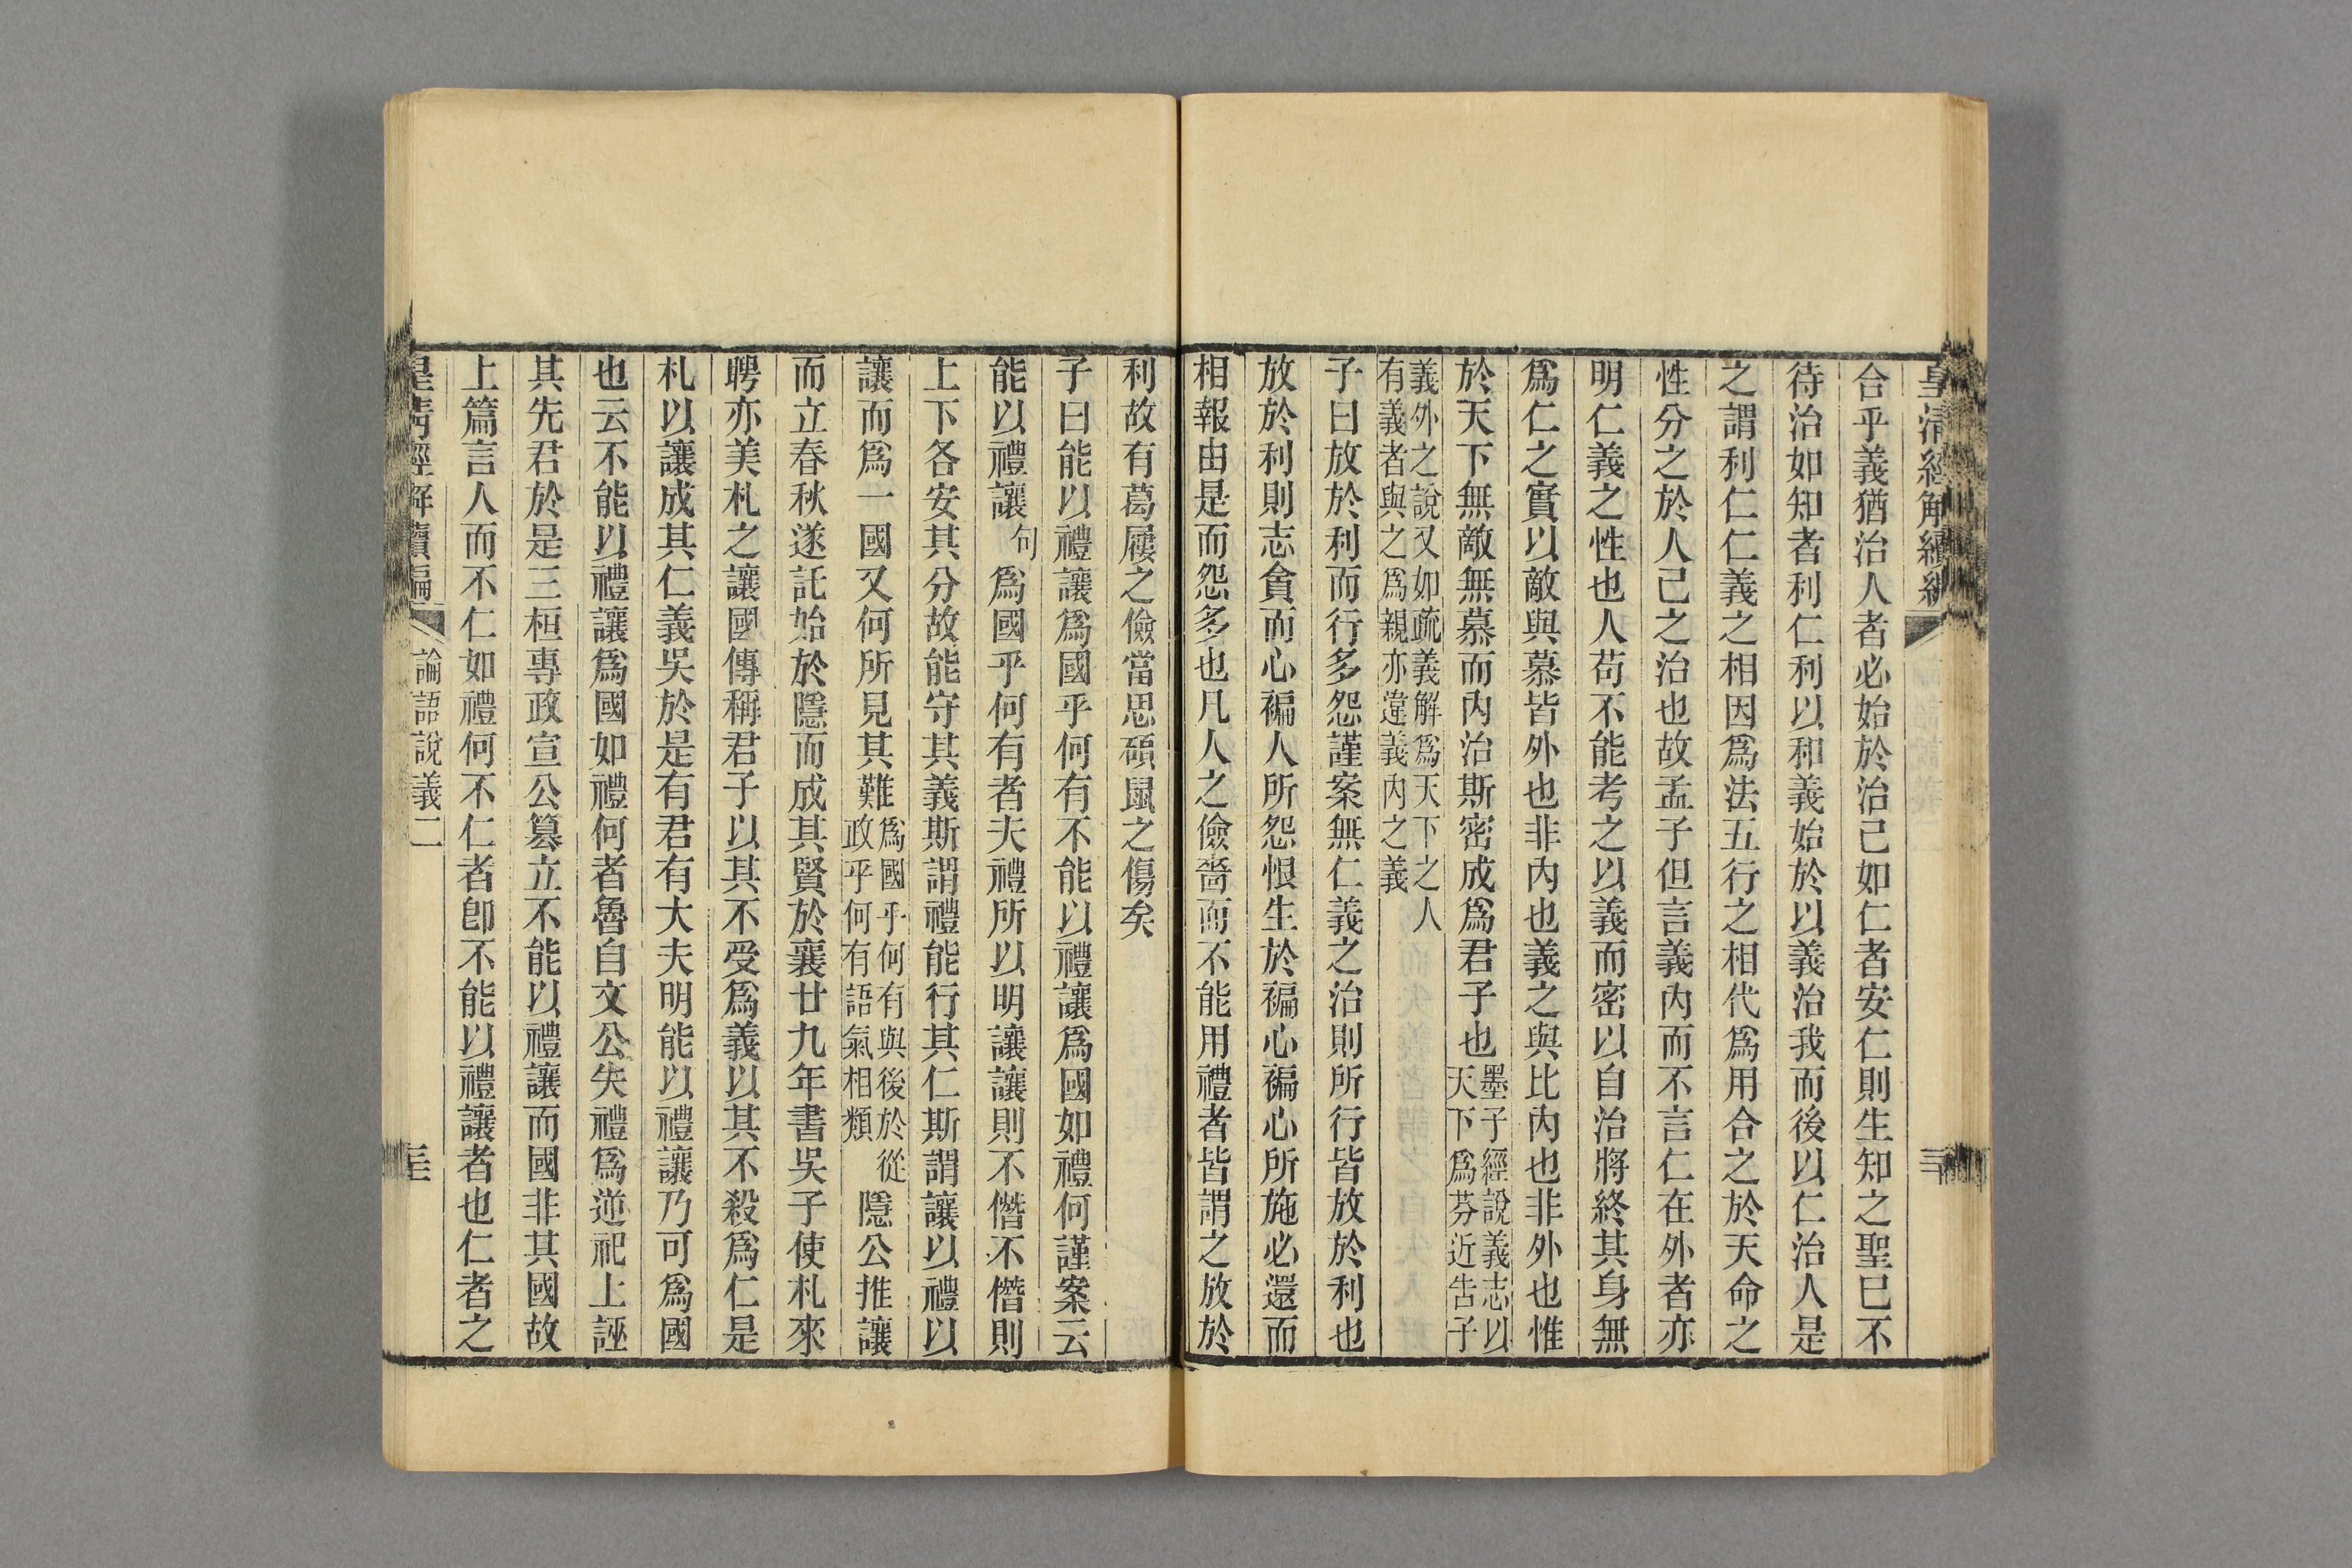 皇清經解續編
三
合乎義猶治人者必始於治己如仁者安仁則生知之聖巳不
待治如知者利仁利以和義始於以義治我而後以仁治人是
之謂利仁仁義之相因爲法五行之相代爲用合之於天命之
性分之於人己之治也故孟子但言義內而不言仁在外者亦
明仁義之性也人苟不能考之以義而密以自治將終其身無
爲仁之實以敵與慕皆外也非內也義之與比內也非外也惟
於天下無敵無慕而內治斯密成爲君子也墨子經說義志以
天下爲芬近告子
義外之說又如疏義解爲天下之人
有義者與之爲親亦違義內之義
子曰放於利而行多怨謹案無仁義之治則所行皆放於利也
放於利則志貪而心褊人所怨恨生於褊心褊心所施必還而
相報由是而怨多也凡人之儉嗇而不能用禮者皆謂之放於
利故有葛屨之儉當思碩鼠之傷矣
子曰能以禮讓爲國乎何有不能以禮讓爲國如禮何謹案云
能以禮讓句爲國乎何有者夫禮所以明讓讓則不僭不僭則
上下各安其分故能守其義斯謂禮能行其仁斯謂讓以禮以
讓而爲一國又何所見其難爲國乎何有與後於從
政乎何有語氣相類隱公推讓
而立春秋遂託始於隱而成其賢於襄廿九年書吳子使札來
聘亦美札之讓國傳稱君子以其不受爲義以其不殺爲仁是
札以讓成其仁義吳於是有君有大夫明能以禮讓乃可爲國
也云不能以禮讓爲國如禮何者魯自文公失禮爲逆祀上誣
其先君於是三桓專政宣公篡立不能以禮讓而國非其國故
上篇言人而不仁如禮何不仁者卽不能以禮讓者也仁者之
皇清經解續編
論語說義二